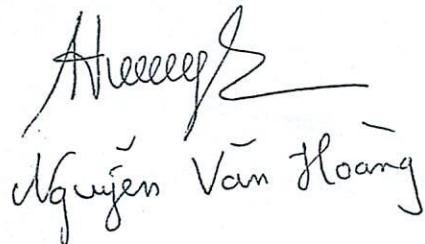 Nguyễn Văn Hoàng